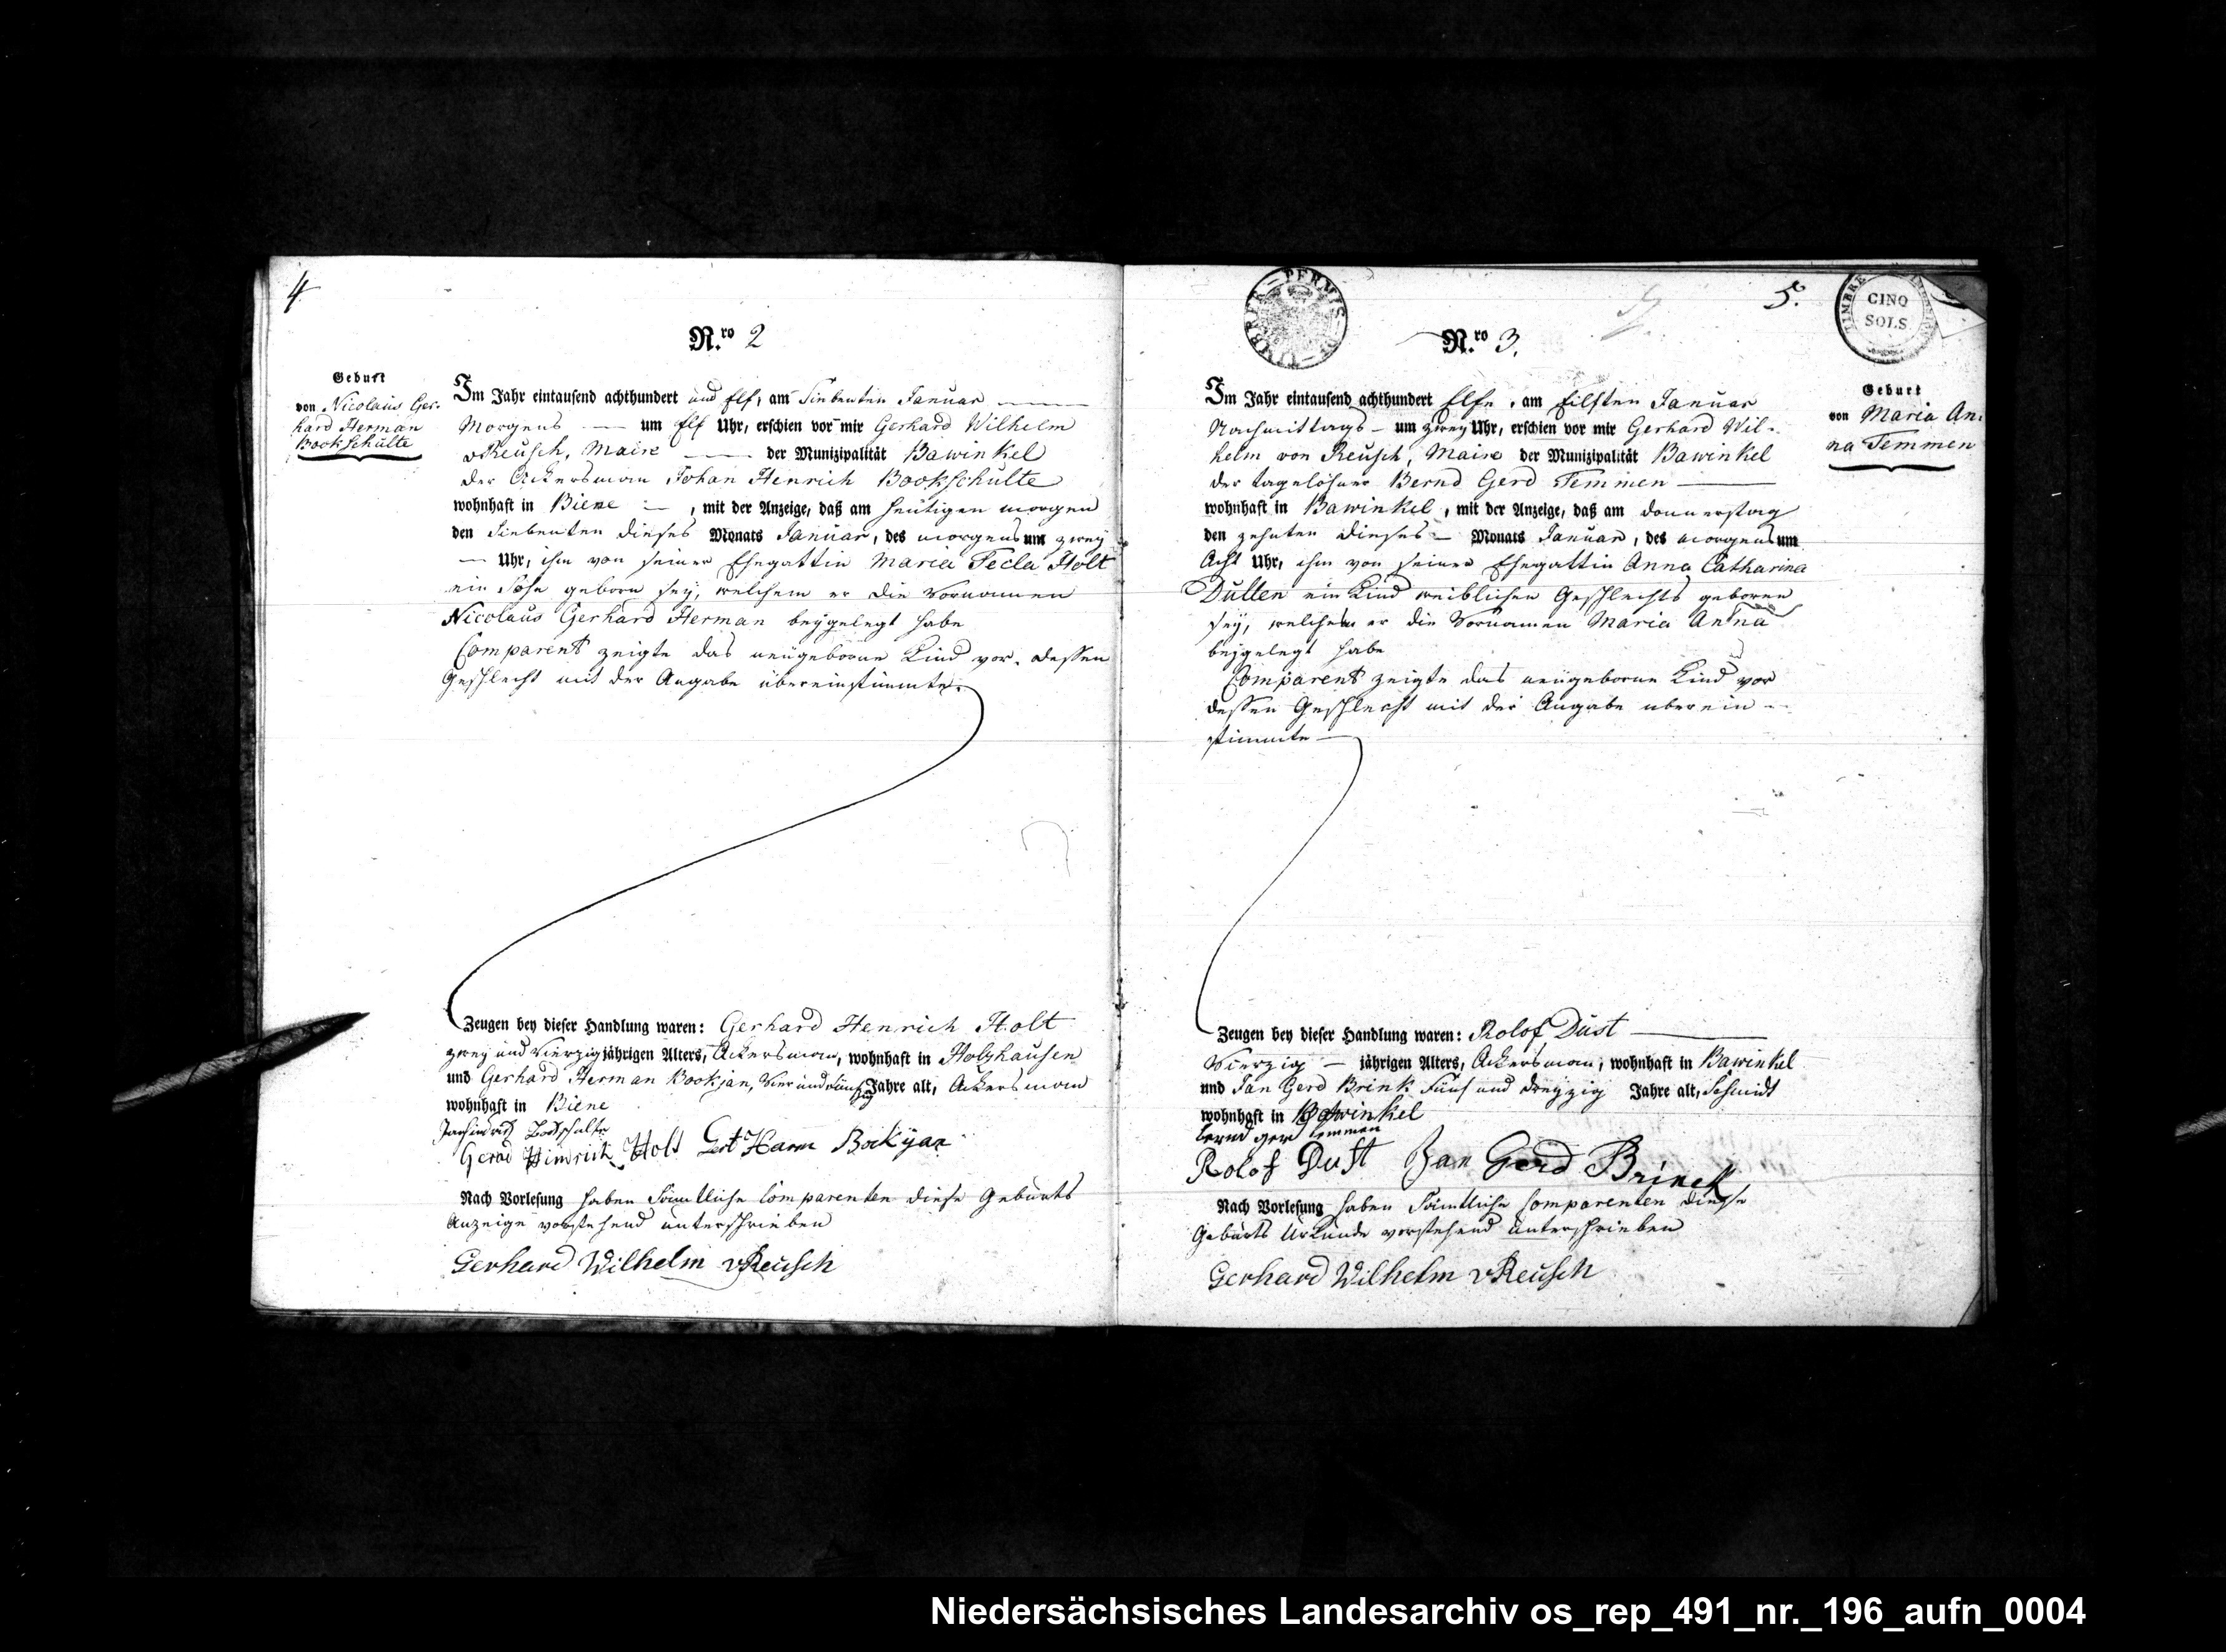 4
N.ro 2
Geburt
von Nicolaus Ger-
hard Herman
Bookschulte
Im Jahr eintausend achthundert und Elf, am Siebenten Januar
Morgens um Elf Uhr, erschien vor mir Gerhard Wilhelm
vReusch, Maire der Munizipalität Bawinkel
der Ackersman Johan Henrich Bookschulte
wohnhaft in Biene, mit der Anzeige, daß am heutigen morgen
den Siebenten dieses Monats Januar, des morgens um zwey
Uhr, ihm von seiner Ehegattin Maria Tecla Holt
ein Sohn geboren sey, welchem er die Vornamen
Nicolaus Gerhard Herman beygelegt habe
Comparent zeigte das neugeborne Kind vor, dessen
Geschlecht mit der Angabe übereinstimmte.
Zeugen bey dieser Handlung waren: Gerhard Henrich Holt
zwey und Vierzig jährigen Alters, Ackersman, wohnhaft in Holzhausen
und Gerhard Herman Bookjan, Vier und Fünfzig Jahre alt, Ackersman
wohnhaft in Biene
Gerad Hinrich Holt Gert Harm Bockyan
Nach Vorlesung haben Sämtliche Comparenten diese Geburts
Anzeige vorstehend unterschrieben
Gerhard Wilhelm vReusch
5.
TIMBRE
CINQ
SOLS
N.ro 3.
Geburt
von Maria An-
na Temmen
Im Jahr eintausend achthundert Elfe, am Eilften Januar
Nachmittags um zwey Uhr, erschien vor mir Gerhard Wil-
helm von Reusch, Maire der Munizipalität Bawinkel
der tagelöhner Bernd Gerd Temmen
wohnhaft in Bawinkel, mit der Anzeige, daß am donnerstag
den zehnten dieses Monats Januar, des morgens um
Acht Uhr, ihm von seiner Ehegattin Anna Catharina
Dulten ein Kind weiblichen Geschlechts geboren
sey, welchem er die Vornamen Maria Anna
beygelegt habe
Comparent zeigte das neugeborne Kind vor
dessen Geschlecht mit der Angabe überein-
stimmte
Zeugen bey dieser Handlung waren: Rolof Dust
Vierzig jährigen Alters, Ackersman, wohnhaft in Bawinkel
und Jan Gerd Brink Fünf und dreyzig Jahre alt, Schmidt
wohnhaft in Bawinkel
bernd gerd temmen
Rolof Dust Jan Gerd Brinck
Nach Vorlesung haben Sämtliche Comparenten diese
Geburts Urkunde vorstehend unterschrieben
Gerhard Wilhelm vReusch
Niedersächsisches Landesarchiv os_rep_491_nr._196_aufn_0004